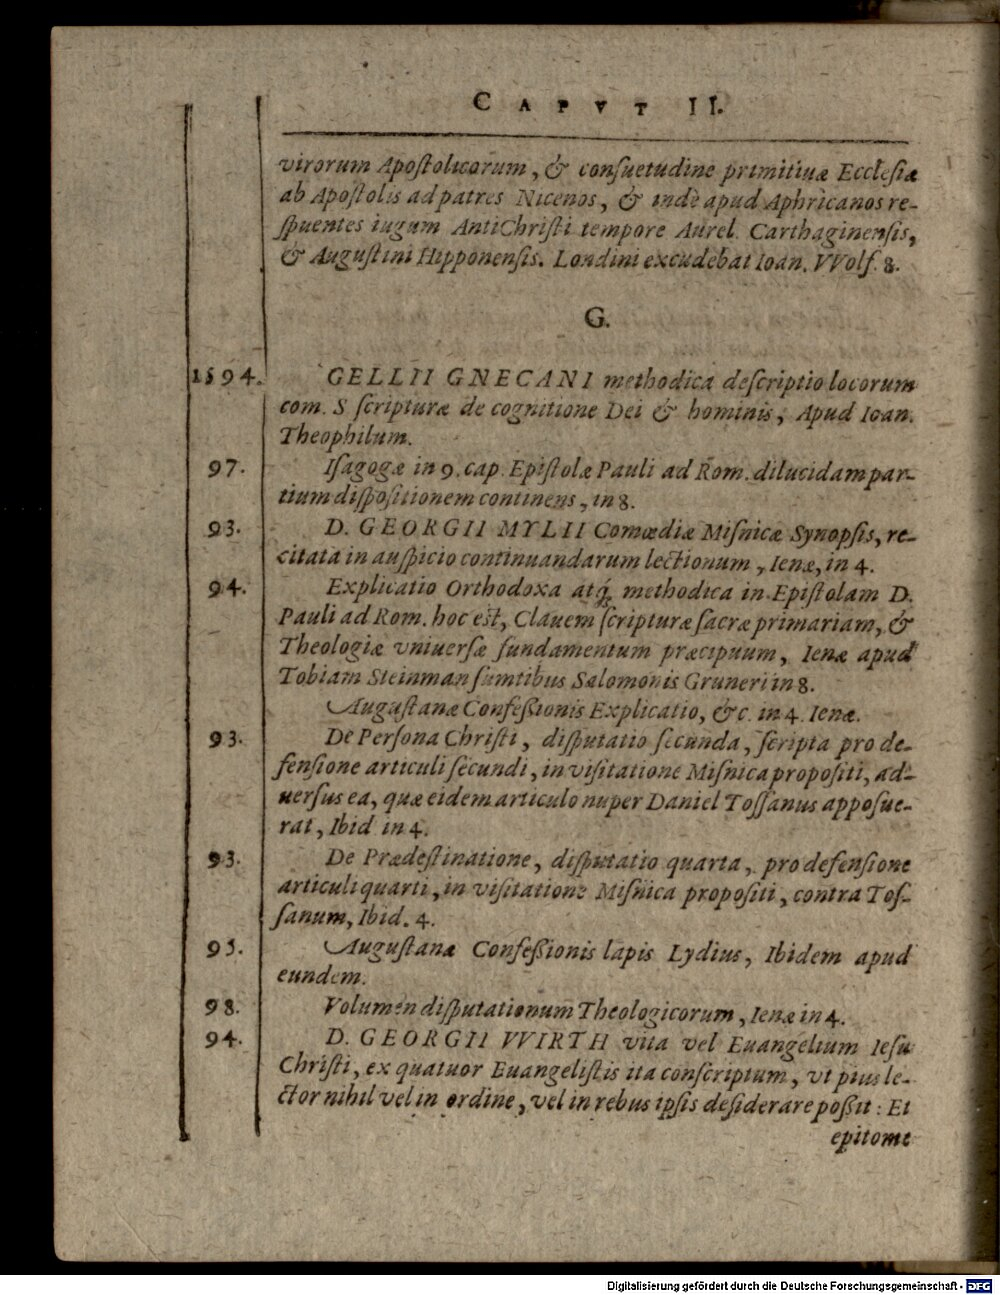 CAPVT II.
virorum Apoſtolicorum, & conſuetudine primitiuæ Eccleſiæ
ab Apoſtolis ad patres Nicenos, & indè apud Aphricanos re-
ſpuentes iugum AntiChriſti tempore Aurel. Carthaginenſis,
& Auguſtini Hipponenſis. Londini excudebat Ioan. VVolf. 8.
G.
1594. GELLII GNECANI methodica deſcriptio locorum
com. S ſcripturæ de cognitione Dei & hominis, Apud Ioan.
Theophilum.
97. Iſagogæ in 9. cap. Epiſtolæ Pauli ad Rom. dilucidam par-
tium diſpoſitionem continens, in 8.
93. D. GEORGII MYLII Comœdiæ Miſnicæ Synopſis, re-
citata in auſpicio continuandarum lectionum, Ienæ, in 4.
94. Explicatio Orthodoxa atq́; methodica in Epiſtolam D.
Pauli ad Rom. hoc est, Clauem ſcripturæ ſacræ primariam, &
Theologiæ vniuerſæ fundamentum præcipuum, Ienæ apud
Tobiam Steinman ſumtibus Salomonis Gruneri in 8.
Auguſtanæ Confeßionis Explicatio, &c. in 4. Ienæ.
93. De Perſona Chriſti, diſputatio ſecunda, ſcripta pro de-
fenſione articuli ſecundi, in viſitatione Miſnica propoſiti, ad-
uerſus ea, quæ eidem articulo nuper Daniel Toſſanus appoſue-
rat, Ibid in 4.
93. De Prædeſtinatione, diſputatio quarta, pro defenſione
articuli quarti, in viſitatione Miſnica propoſiti, contra Toſ-
ſanum, Ibid. 4.
95. Auguſtanæ Confeßionis lapis Lydius, Ibidem apud
eundem.
98. Volumen diſputationum Theologicorum, Ienæ in 4.
94. D. GEORGII VVIRTH vita vel Euangelium Ieſu
Chriſti, ex quatuor Euangeliſtis ita conſcriptum, vt pius le-
ctor nihil vel in ordine, vel in rebus ipſis deſiderare poßit: Et
epitome
Digitalisierung gefördert durch die Deutsche Forschungsgemeinschaft - DFG